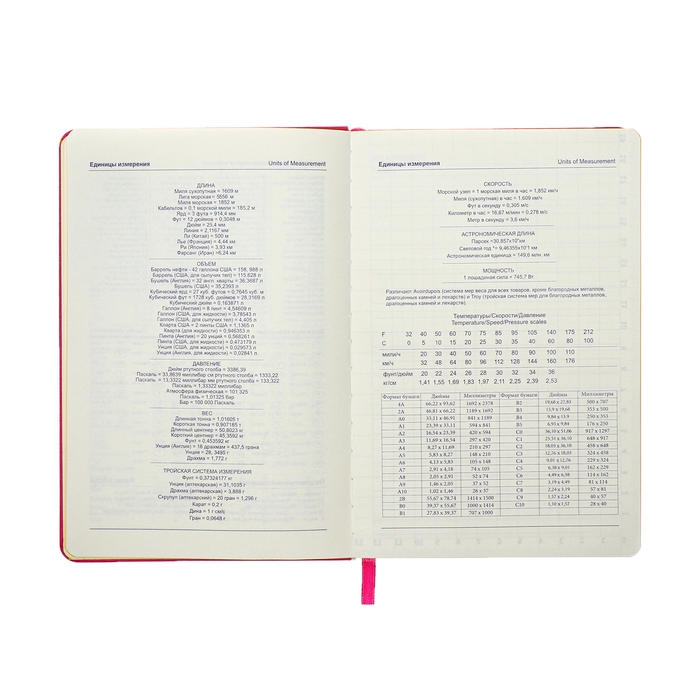 Единицы измерения Units of Measurement
ДЛИНА
Миля сухопутная = 1609 м
Лига морская = 5656 м
Миля морская = 1852 м
Кабельтов = 0,1 морской мили = 185,2 м
Ярд = 3 фута = 914,4 мм
Фут = 12 дюймов = 0,3048 м
Дюйм = 25,4 мм
Линия = 2,1167 мм
Ли (Китай) = 500 м
Лье (Франция) = 4,44 км
Ри (Япония) = 3,93 км
Фарсанг (Иран) =6,24 км
ОБЪЕМ
Баррель нефти - 42 галлона США = 158, 988 л
Баррель (США, для сыпучих тел) = 115,628 л
Бушель (Англия) = 32 англ. кварты = 36,3687 л
Бушель (США) = 35,2393 л
Кубический ярд = 27 куб. футов = 0,7645 куб. м
Кубический фут = 1728 куб. дюймов = 28,3169 л
Кубический дюйм = 0,163871 л
Галлон (Англия) = 8 пинт = 4,54609 л
Галлон (США, для жидкости) = 3,78543 л
Галлон (США, для сыпучих тел) = 4,405 л
Кларта США = 2 пинты США = 1,1365 л
Кварта (для жидкости) = 0,946353 л
Пинта (Англия) = 20 унций = 0,568261 л
Пинта (США, для жидкости) = 0,473179 л
Унция (США, для жидкости) = 0,029573 л
Унция (Англия, для жидкости) = 0,02841 л
ДАВЛЕНИЕ
Дюйм ртутного столба = 3386,39
Паскаль = 33,8639 миллибар см ртутного столба = 1333,22
Паскаль = 13,3322 миллибар мм ртутного столба = 133,322
Паскаль = 1,33322 миллибар
Атмосфера физическая = 101 325
Паскаль = 1,01325 бар
Бар = 100 000 Паскаль
ВЕС
Длинная тонна = 1,01605 т
Короткая тонна = 0,907185 т
Длинный центнер = 50,8023 кг
Короткий центнер = 45,3592 кг
Фунт = 0,453592 кг
Унция (Англия) = 16 драхмам = 437,5 грана
Унция = 28, 3495 г
Драхма = 1,772 г
ТРОЙСКАЯ СИСТЕМА ИЗМЕРЕНИЯ
Фунт = 0,37324177 кг
Унция (аптекарская) = 31,1035 г
Драхма (аптекарская) = 3,888 г
Скрупул (аптекарский) = 20 гран = 1,296 г
Карат = 0,2 г
Дина = 1 г см/с
Гран = 0,0648 г
Единицы измерения Units of Measurement
СКОРОСТЬ
Морской узел = 1 морская миля в час = 1,852 км/ч
Миля (сухопутная) в час = 1,609 км/ч
Фут в секунду = 0,305 м/с
Километр в час = 16,67 м/мин = 0,278 м/с
Метр в секунду = 3,6 км/ч
АСТРОНОМИЧЕСКАЯ ДЛИНА
Парсек =30,857х10¹²км
Световой год *= 9,46355х10¹²1 км
Астрономическая единица = 149,6 млн. км
МОЩНОСТЬ
1 лошадиная сила = 745,7 Вт
Различают Avoirdupois (система мер веса для всех товаров, кроме благородных металлов,
драгоценных камней и лекарств) и Troy (тройская система мер для благородных металлов,
драгоценных камней и лекарств).
Температуры/Скорости/Давление
Temperature/Speed/Pressure scales
F 32 40 50 60 70 75 85 95 105 140 175 212
C 0 5 10 15 20 25 30 35 40 60 80 100
мили/ч 20 30 40 50 60 70 80 90 100 110
км/ч 32 48 64 80 96 112 128 144 160 176
фунт/дюйм 20 22 24 26 28 30 32 34 36
кг/см 1,41 1,55 1,69 1,83 1,97 2,11 2,25 2,39 2,53
Формат бумаги Дюймы Миллиметры Формат бумаги Дюймы Миллиметры
4A 66,22 x 93,62 1692 x 2378 B2 19,68 x 27,83 500 x 707
2A 46,81 x 66,22 1189 x 1692 B3 13,9 x 19,68 353 x 500
A0 33,11 x 46,81 841 x 1189 B4 9,84 x 13,9 250 x 353
A1 23,39 x 33,11 594 x 841 B5 6,93 x 9,84 176 x 250
A2 16,54 x 23,39 420 x 594 C0 36,10 x 51,06 917 x 1297
A3 11,69 x 16,54 297 x 420 C1 25,51 x 36,10 648 x 917
A4 8,27 x 11,69 210 x 297 C2 18,03 x 25,51 458 x 648
A5 5,83 x 8,27 148 x 210 C3 12,76 x 18,03 324 x 458
A6 4,13 x 5,83 105 x 148 C4 9,01 x 12,76 229 x 324
A7 2,91 x 4,18 74 x 105 C5 6,38 x 9,01 162 x 229
A8 2,05 x 2,91 52 x 74 C6 4,49 x 6,38 114 x 162
A9 1,46 x 2,05 37 x 52 C7 3,19 x 4,49 81 x 114
A10 1,02 x 1,46 26 x 37 C8 2,24 x 3,19 57 x 81
2B 55,67 x 78,74 1414 x 1500 C9 1,57 x 2,24 40 x 57
B0 39,37 x 55,67 1000 x 1414 C10 1,10 x 1,57 28 x 40
B1 27,83 x 39,37 707 x 1000